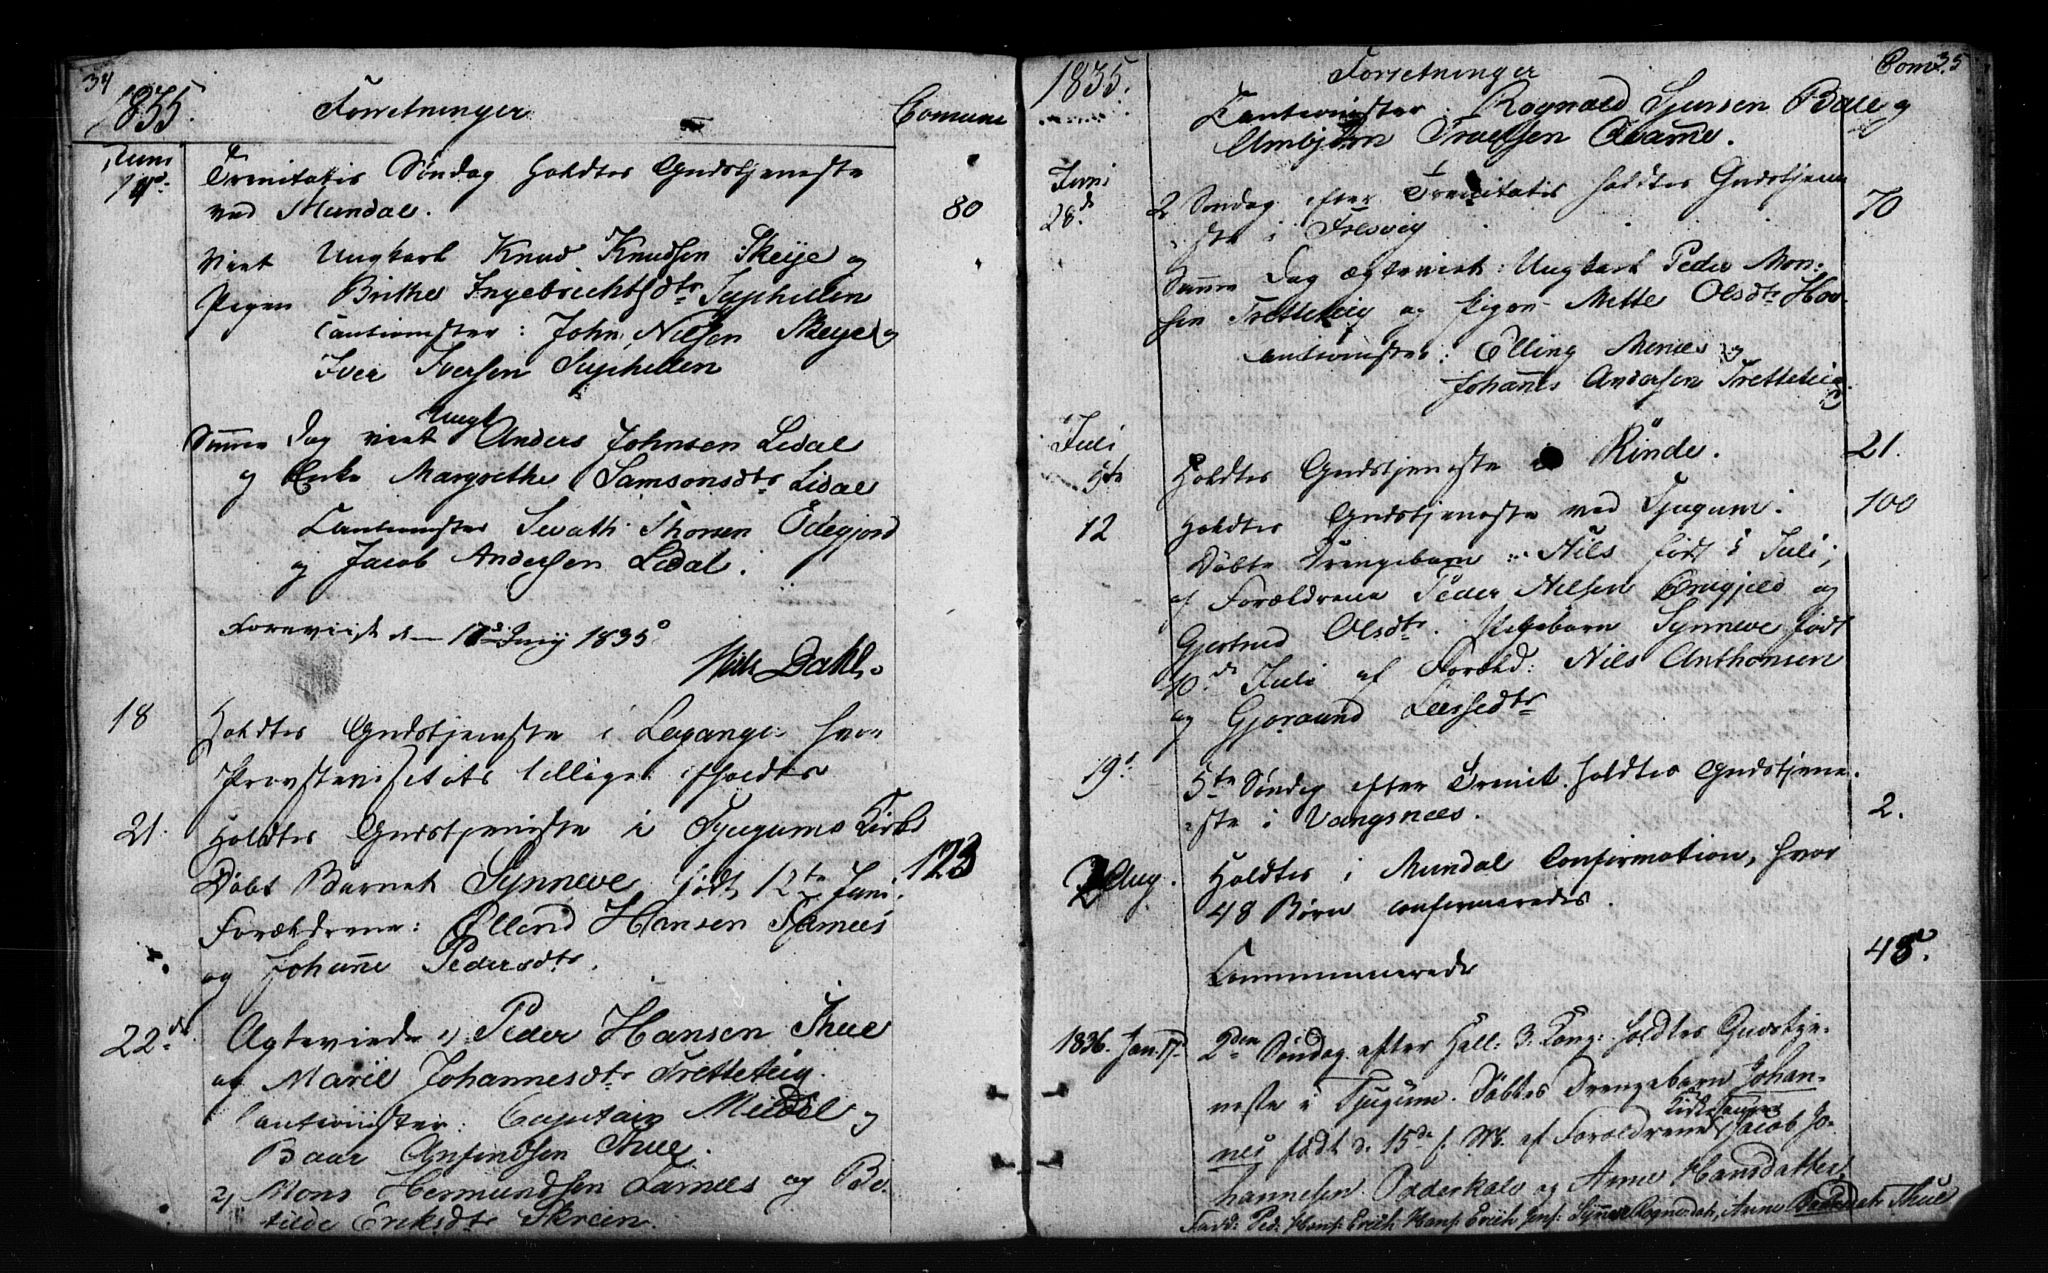 34
1835. Forretninger Comune
Juni
14de Trinitatis Søndag holdtes Gudstjeneste
ved Mundal. 80
Viet Ungkarl Knud Knudsen Skeije og
Pigen Brithe Ingebrichtsdtr Suphellen
Cautionister: John Nielsen Skeije og
Iver Iversen Suphellen
Samme Dag viet Ungk Anders Johnsen Lidal
og Enke Margrethe Samsonsdtr Lidal
Cautionister Sivath Thorsen Ødegjord
og Jacob Andersen Lidal.
Foreviist d 17de Junij 1835
Niels Dahl
18 Holdtes Gudstjeneste i Leganger hvor
Provstevisitats tillige afholdtes
21. Holdtes Gudstjeneste i Tjugums Kirke 123
Døbt Barnet Synneve født 12te Juni.
Forældrene: Ellend Hansen Tjernees
og Johanne Pedersdtr.
22de Ægteviede 1) Peder Hansen Thue
og Marie Johannesdtr Tretteteig.
Cautionister: Capitain Meidel og
Baar Anfindsen Thue.
2) Mons Hermundsen Farnees og Bo-
tilde Eriksdtr Skrein.
1835. Forretninger Com: 35
Cautionister: Rognald Sjursen Bale og
Arnbjørn Truelsen Qvame.
Juni
28de 2 Søndag efter Trinitatis holdtes Gudstjene
ste i Fresvig 70
Samme Dag ægteviet: Ungkarl Peder Mon-
sen Tretteteig og Pigen Mette Olsdtr Hov
Cautionister: Elling Menees og
Johannes Andersen Tretteteig
Juli
5te Holdtes Gudstjeneste i Rinde. 21.
12 Holdtes Gudstjeneste ved Tjugum. 100
Døbte Drengebarn: Nils født 5 Juli;
af Forældrene Peder Nilsen Ourigjeld og
Gjertrud Olsdtr. Pigebarn Synneve født
10de Juli af Foræld: Nils Anthonsen
og Gjøraund Lassedtr
19de 5te Søndag efter Trinit. holdtes Gudstjene-
ste i Vangsnees. 2.
2 Aug. Holdtes i Mundal Confirmation, hvor
48 Børn confirmeredes.
Communicerede 48.
1836. Jan. 17. 2den Søndag efter Hell: 3 Kong: holdtes Gudstje-
neste i Tjugum. Døbtes Drengebarn Johan-
nes født d. 15de f. M. af Forældrene Kirkesanger Jacob Jo-
hannesen Odderkale og Anne Hansdatter
Fadd: Ped: Hans: Erich Hans: Erich Jens: Synneve Rognedatr, Anne Baarsdatr Thue